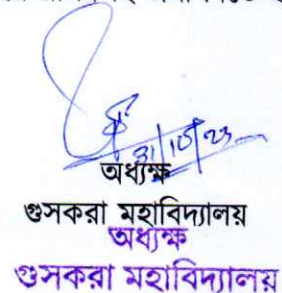 31/10/23
অধ্যক্ষ
গুসকরা মহাবিদ্যালয়
অধ্যক্ষ
গুসকরা মহাবিদ্যালয়